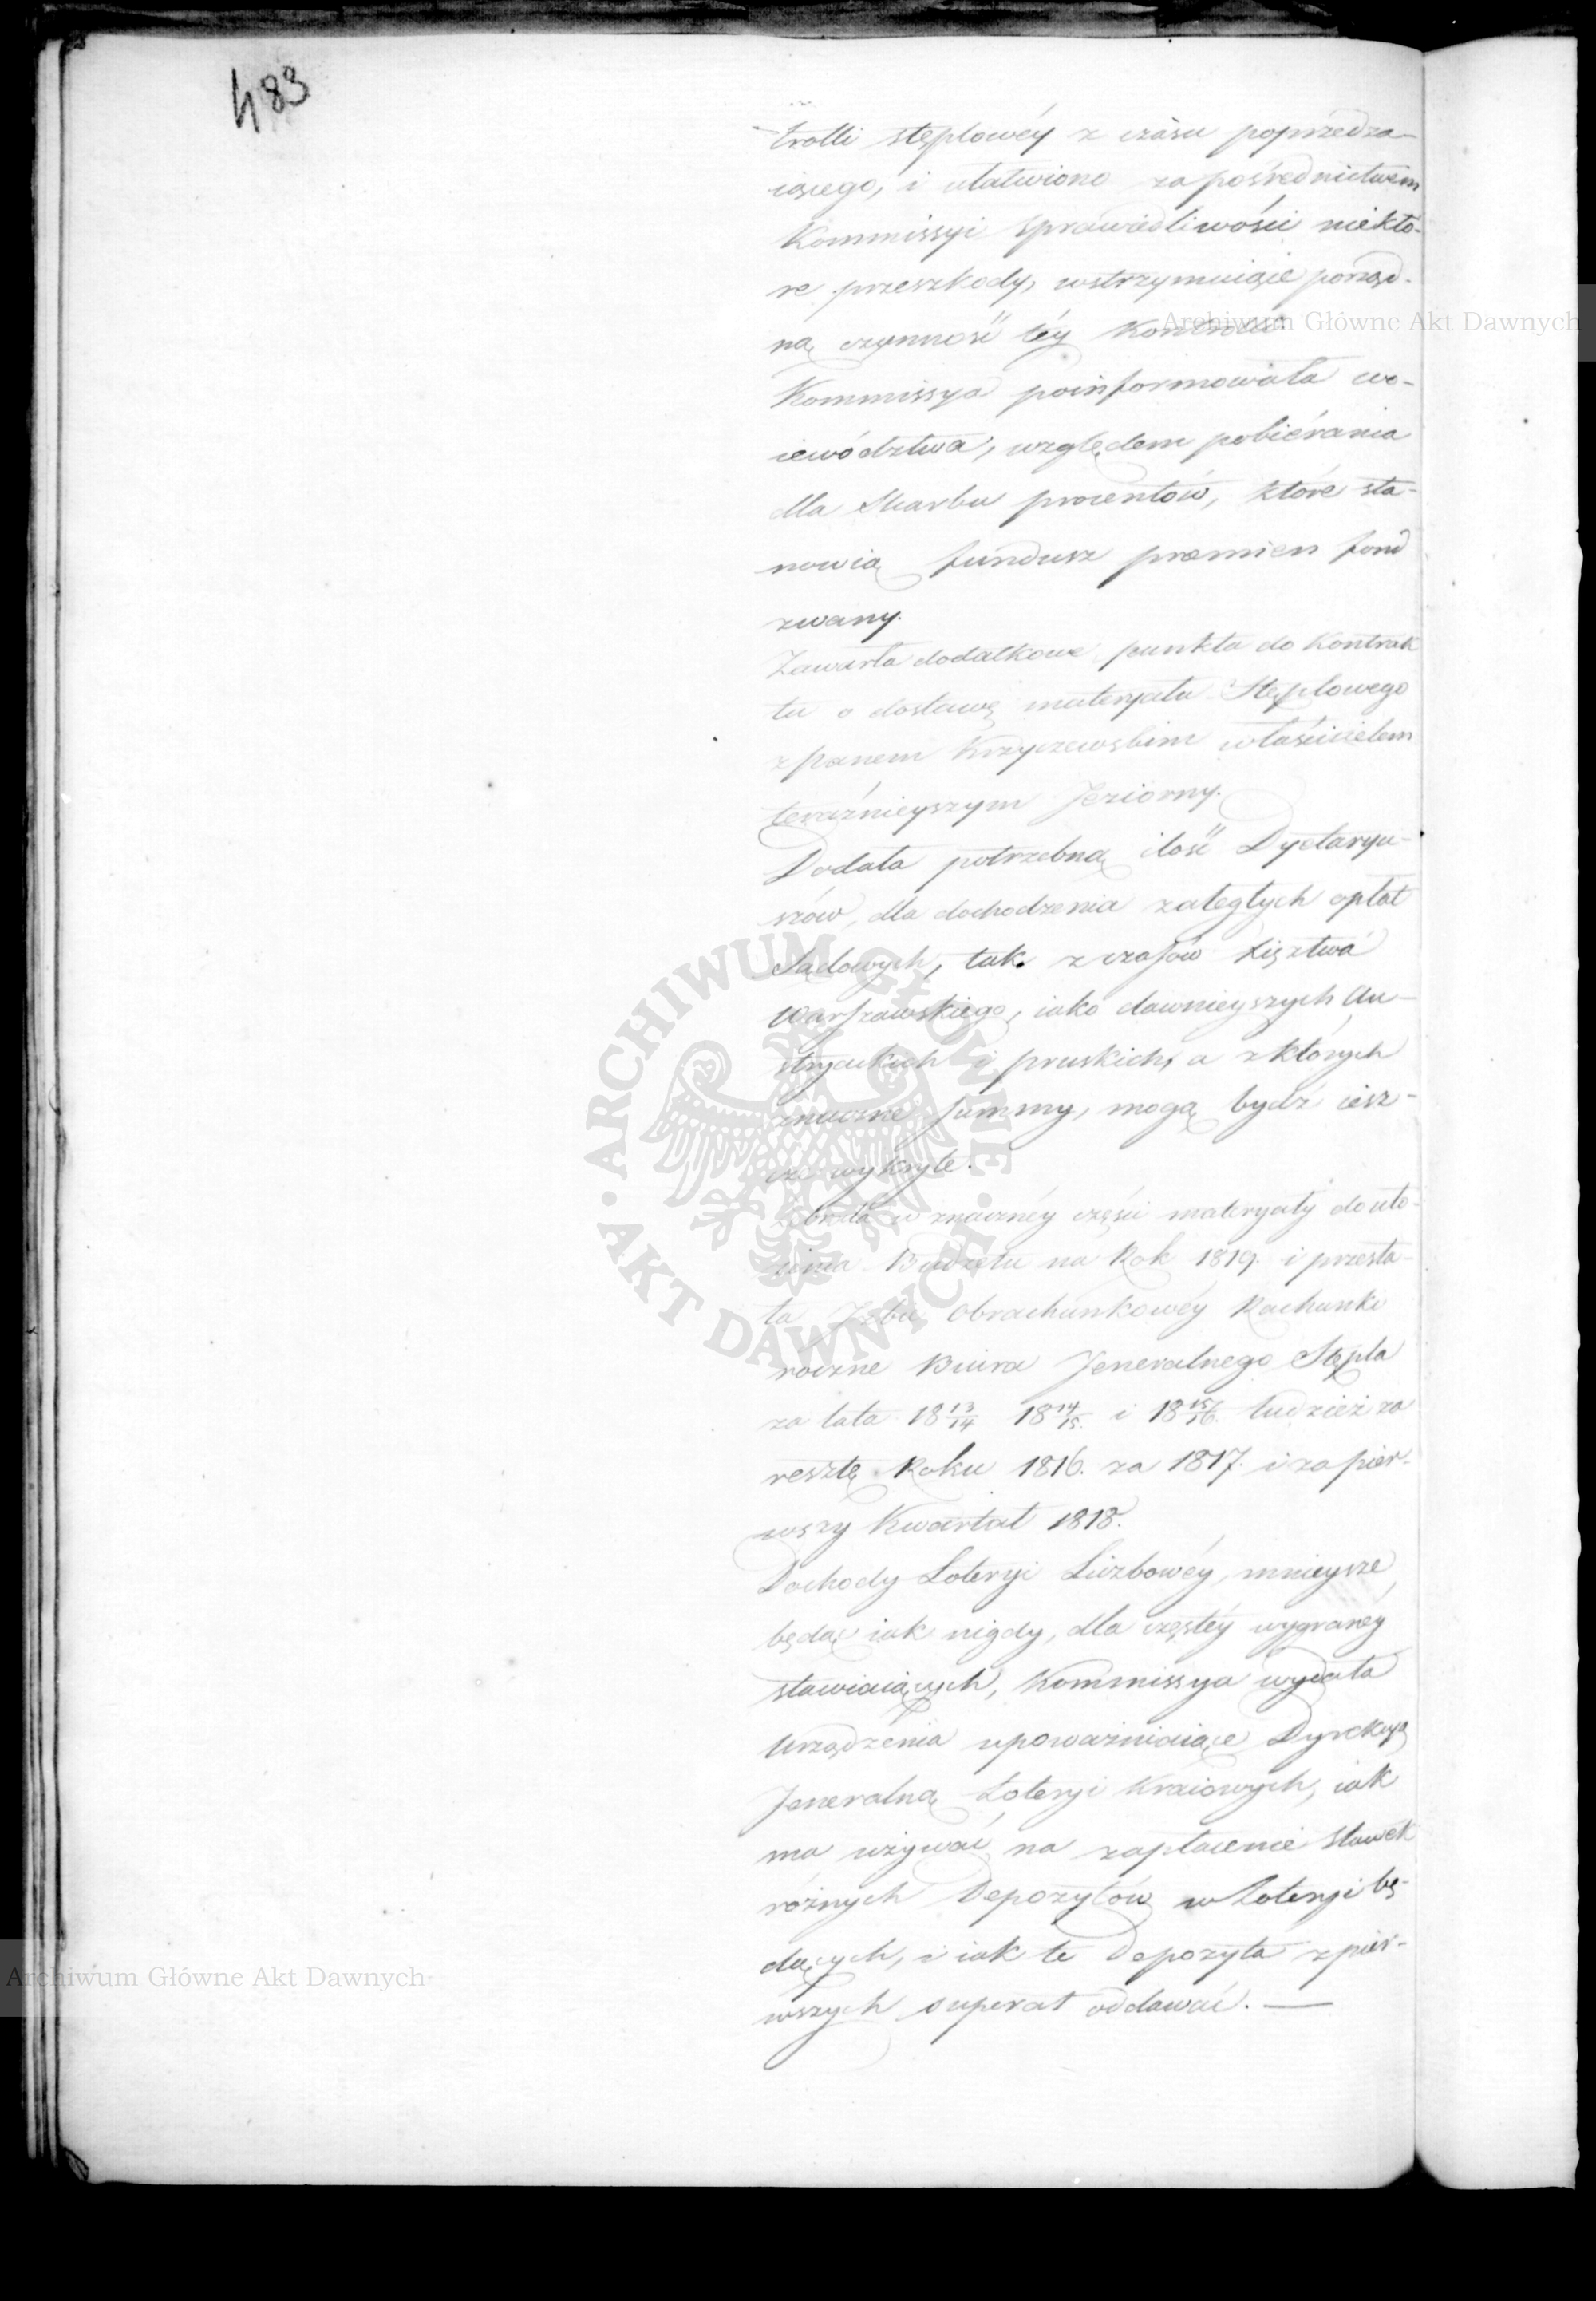 483
trolli stęplowéy z czasu poprzedza-
iącego, i ułatwiono za pośrednictwem
Kommissyi Sprawiedliwości niektó-
re przeszkody, wstrzymuiące porząd-
ną czynność téy Kontrolli
Archiwum Główne Akt Dawnych
Kommissya poinformowała wo-
iewództwa, względem pobiérania
dla Skarbu procentów, które sta-
nowią fundusz praemien fond
zwany.
Zawarła dodatkowe punkta do Kontrak
tu o dostawę materyału Stęplowego
z panem Krzyczewskim właścicielem
teraźnieyszym Jeziorny.
Dodała potrzebną ilość Dyetaryu-
szów, dla dochodzenia zaległych opłat
Sądowych, tak z czasów Xięztwa
Warszawskiego, iako dawnieyszych Au-
stryackich i pruskich, a z których
znaczne summy, mogą bydź iesz-
cze wykryte.
Zebrała w znacznéy części materyały do uło-
żenia Budżetu na Rok 1819. i przesła-
ła Izbie Obrachunkowéy Rachunki
roczne Biura Jeneralnego Stępla
za lata 18 13/14 18 14/15. i 18 15/16. tudzież za
resztę Roku 1816. za 1817. i za pier-
wszy Kwartał 1818.
Dochody Loteryi Liczbowéy, mnieysze
będąc iak nigdy, dla częstéy wygranéy
stawiaiących, Kommissya wydała
Urządzenia upoważniaiące Dyrekcyą
Jeneralną Loteryi Kraiowych, iak
ma używać na zapłacenie stawek
różnych Depozytów w Loteryi bę-
dących, i iak te Depozyta z pier-
Archiwum Główne Akt Dawnych
wszych superat oddawać. —
ARCHIWUM GŁÓWNE · AKT DAWNYCH ·